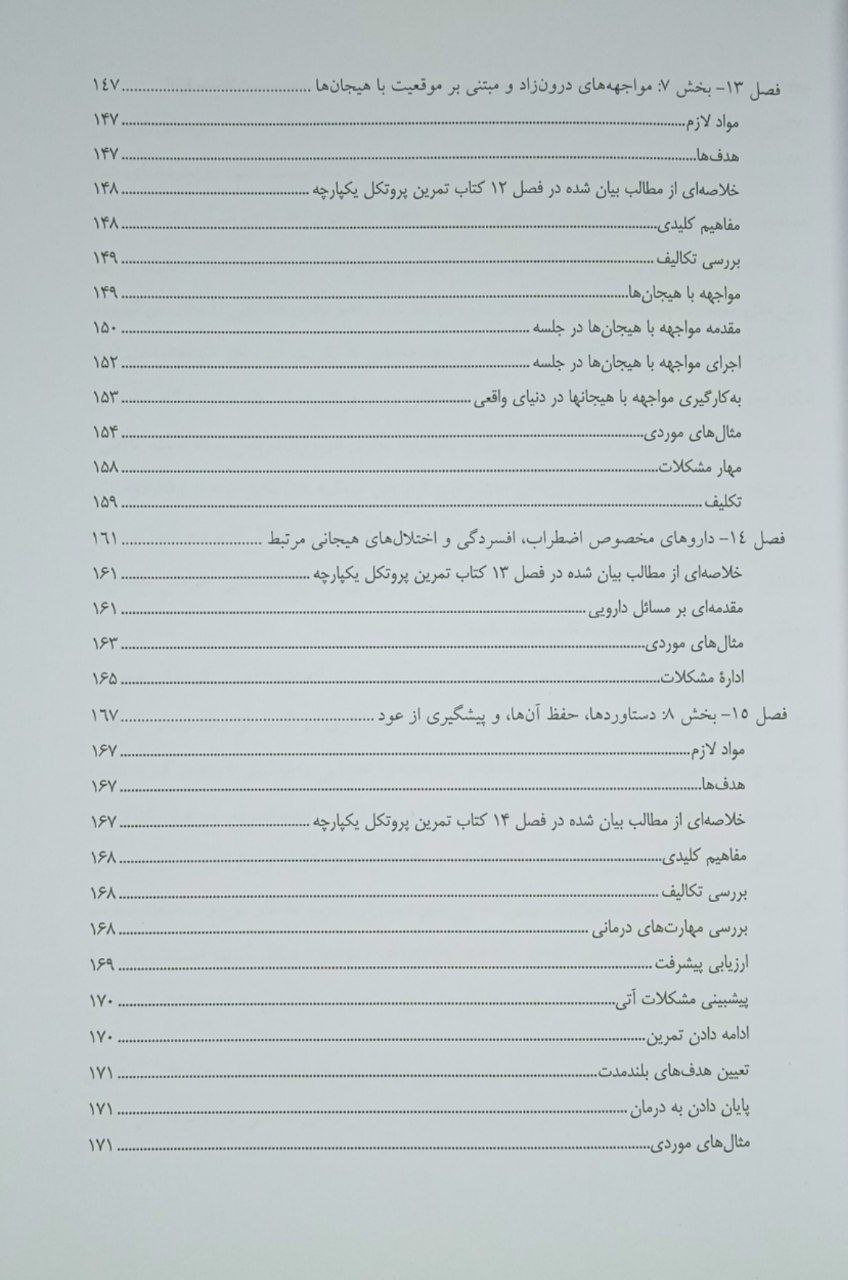 فصل ١٣- بخش ٧: مواجهه‌های درون‌زاد و مبتنی بر موقعیت با هیجان‌ها ........ ١٤٧
مواد لازم ........ ۱۴۷
هدف‌ها ........ ۱۴۷
خلاصه‌ای از مطالب بیان شده در فصل ۱۲ کتاب تمرین پروتکل یکپارچه ........ ۱۴۸
مفاهیم کلیدی ........ ۱۴۸
بررسی تکالیف ........ ۱۴۹
مواجهه با هیجان‌ها ........ ۱۴۹
مقدمه مواجهه با هیجان‌ها در جلسه ........ ۱۵۰
اجرای مواجهه با هیجان‌ها در جلسه ........ ۱۵۲
به‌کارگیری مواجهه با هیجانها در دنیای واقعی ........ ۱۵۳
مثال‌های موردی ........ ۱۵۴
مهار مشکلات ........ ۱۵۸
تکلیف ........ ۱۵۹
فصل ١٤- داروهای مخصوص اضطراب، افسردگی و اختلال‌های هیجانی مرتبط ........ ١٦١
خلاصه‌ای از مطالب بیان شده در فصل ۱۳ کتاب تمرین پروتکل یکپارچه ........ ۱۶۱
مقدمه‌ای بر مسائل دارویی ........ ۱۶۱
مثال‌های موردی ........ ۱۶۳
ادارهٔ مشکلات ........ ۱۶۵
فصل ١٥- بخش ٨: دستاوردها، حفظ آن‌ها، و پیشگیری از عود ........ ١٦٧
مواد لازم ........ ۱۶۷
هدف‌ها ........ ۱۶۷
خلاصه‌ای از مطالب بیان شده در فصل ۱۴ کتاب تمرین پروتکل یکپارچه ........ ۱۶۷
مفاهیم کلیدی ........ ۱۶۸
بررسی تکالیف ........ ۱۶۸
بررسی مهارت‌های درمانی ........ ۱۶۸
ارزیابی پیشرفت ........ ۱۶۹
پیشبینی مشکلات آتی ........ ۱۷۰
ادامه دادن تمرین ........ ۱۷۰
تعیین هدف‌های بلندمدت ........ ۱۷۱
پایان دادن به درمان ........ ۱۷۱
مثال‌های موردی ........ ۱۷۱